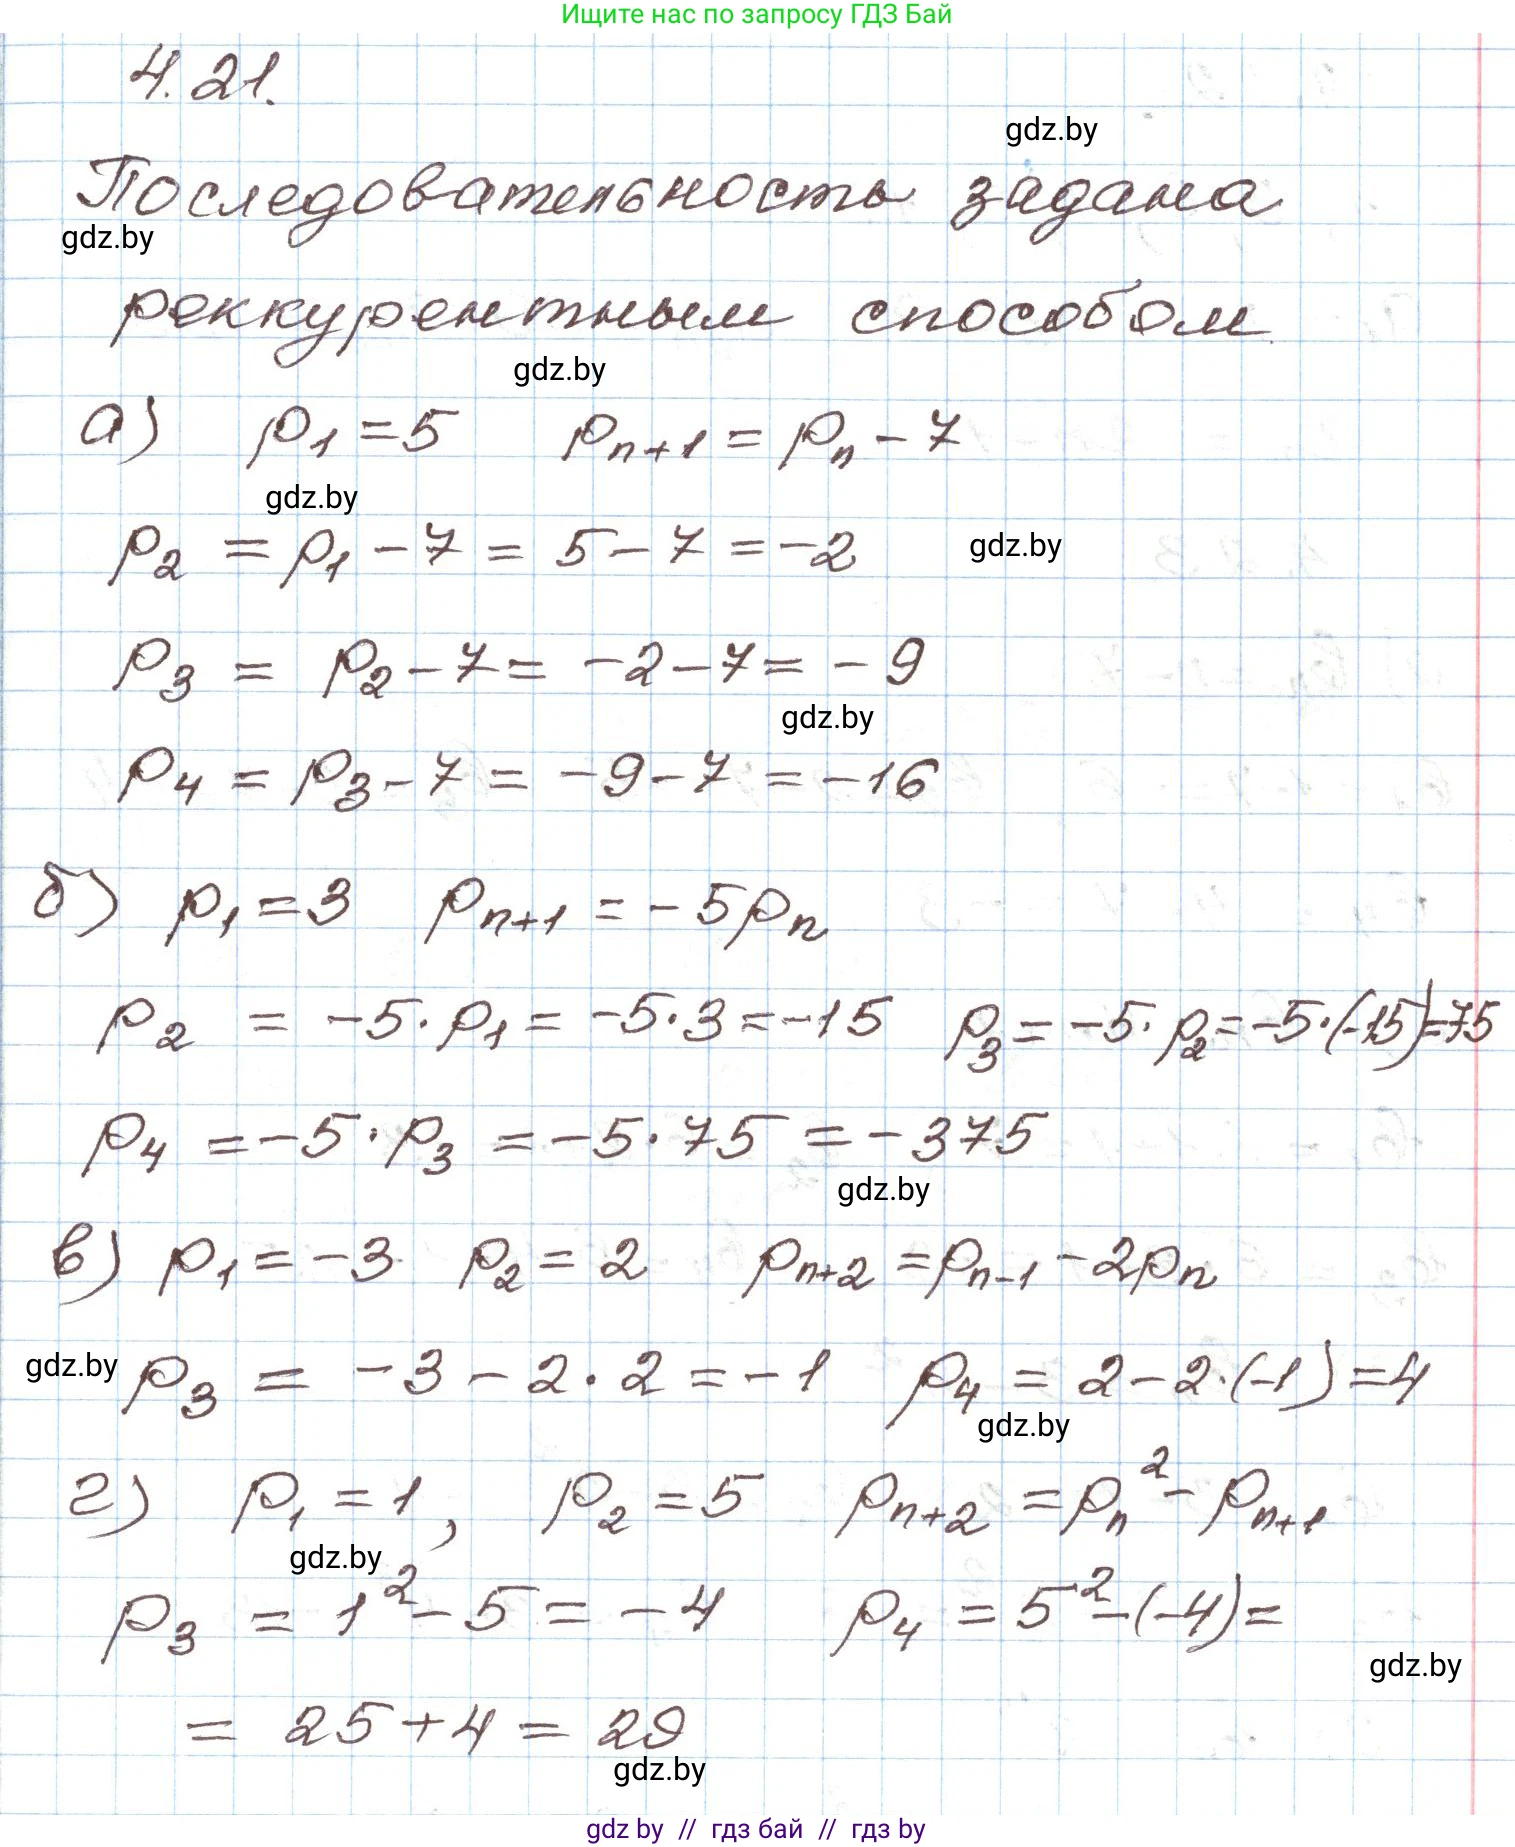 Ищите нас по запросу ГДЗ Бай
4.21.
gdz.by
Последовательность задана
gdz.by
реккурентным способом
gdz.by
а) p₁ = 5 pₙ₊₁ = pₙ − 7
gdz.by
p₂ = p₁ − 7 = 5 − 7 = −2 gdz.by
p₃ = p₂ − 7 = −2 − 7 = −9
gdz.by
p₄ = p₃ − 7 = −9 − 7 = −16
б) p₁ = 3 pₙ₊₁ = −5pₙ
p₂ = −5·p₁ = −5·3 = −15 p₃ = −5·p₂ = −5·(−15) = 75
p₄ = −5·p₃ = −5·75 = −375
gdz.by
в) p₁ = −3 p₂ = 2 pₙ₊₂ = pₙ₋₁ − 2pₙ
gdz.by p₃ = −3 − 2·2 = −1 p₄ = 2 − 2·(−1) = 4
gdz.by
г) p₁ = 1, p₂ = 5 pₙ₊₂ = pₙ² − pₙ₊₁
gdz.by
p₃ = 1² − 5 = −4 p₄ = 5² − (−4) =
gdz.by
= 25 + 4 = 29
gdz.by
gdz by // гдз бай // gdz by